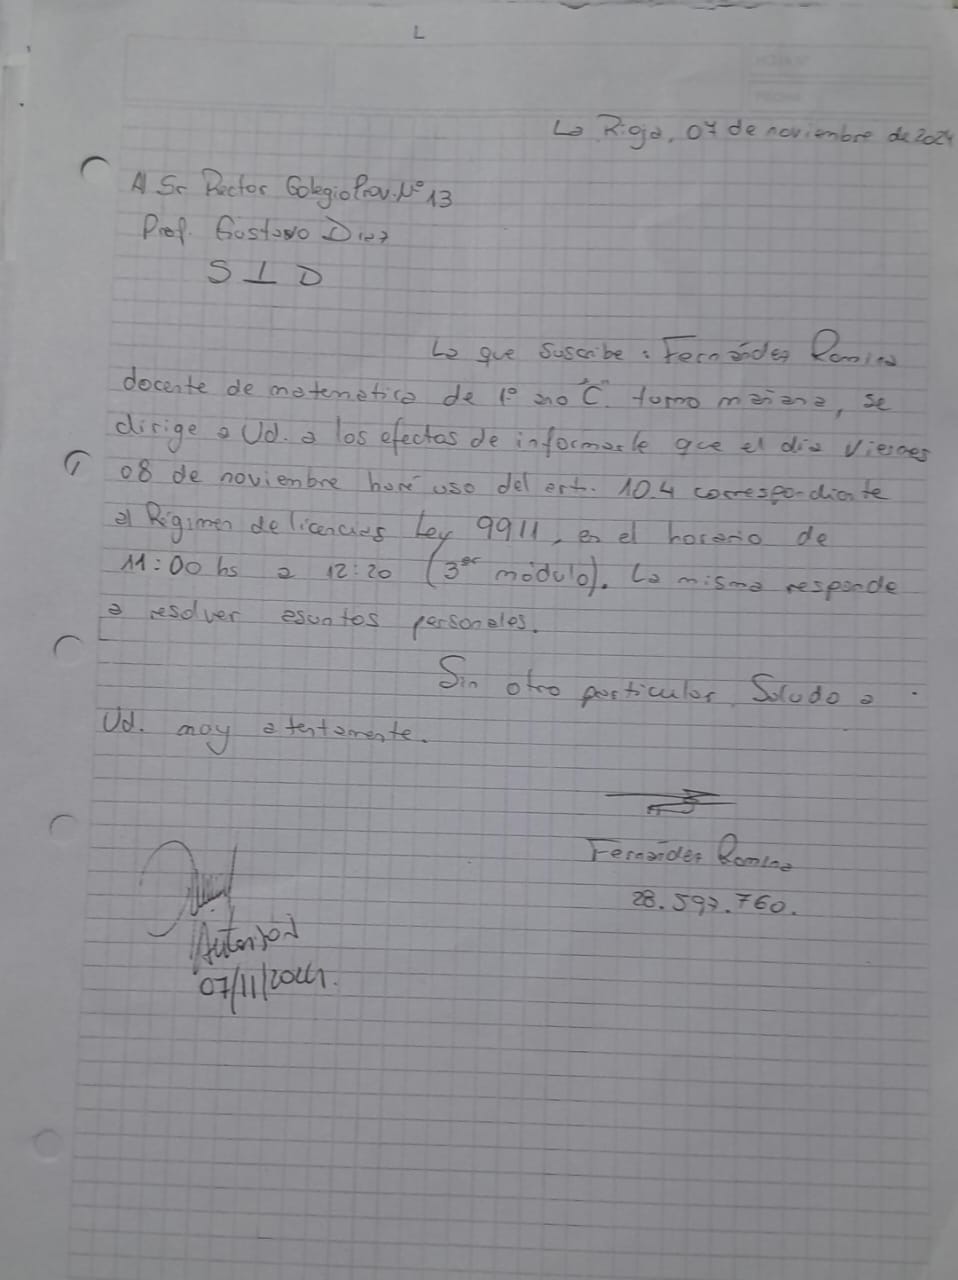 La Rioja, 07 de noviembre de 2024
Al Sr Rector Colegio Prov. N° 13
Prof. Gustavo Diaz
S I D
La que suscribe: Fernández Romina
docente de matemática de 1° año "C" turno mañana, se
dirige a Ud. a los efectos de informarle que el día viernes
08 de noviembre haré uso del art. 10.4 correspondiente
al Régimen de licencias Ley 9911, en el horario de
11:00 hs a 12:20 (3er módulo). La misma responde
a resolver asuntos personales.
Sin otro particular Saludo a
Ud. muy atentamente.
Fernández Romina
28.597.760.
Autorizad
07/11/2024.